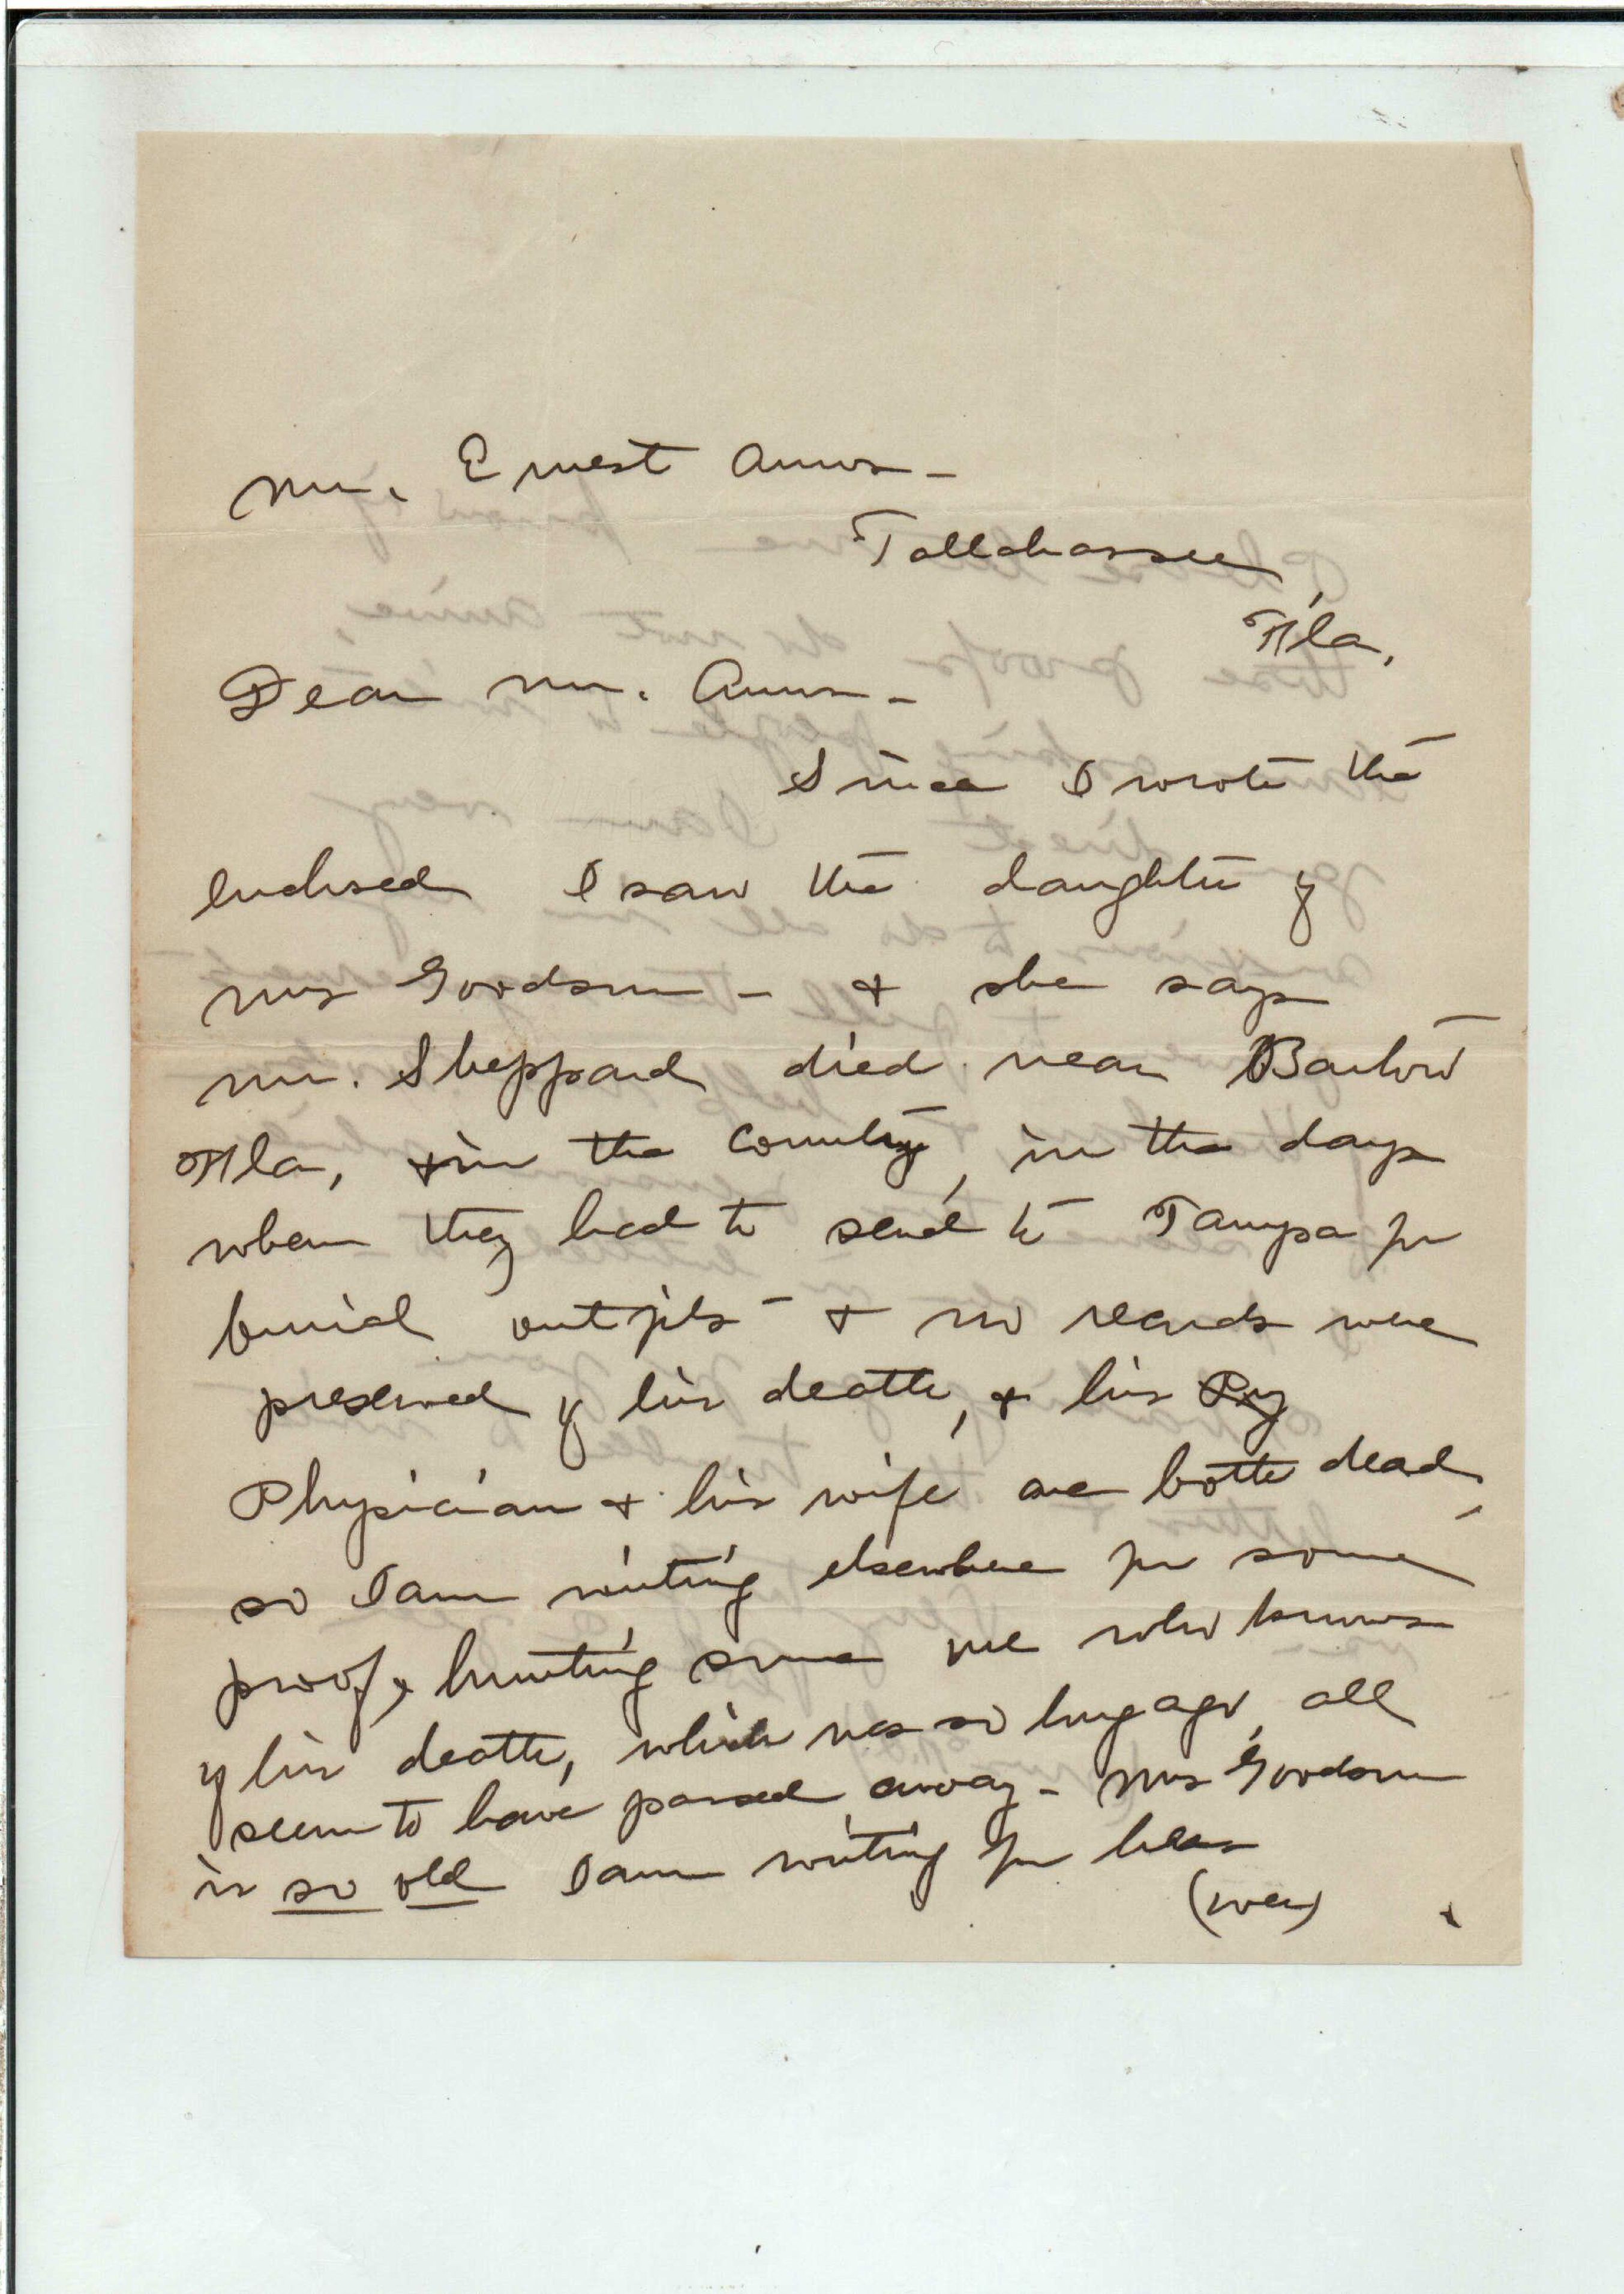 Mr. Ernest Amos -
Tallahassee,
Fla,
Dear Mr. Amos -
Since I wrote the
enclosed I saw the daughter of
Mrs Goodson - + she says
Mr. Sheppard died near Bartow
Fla, + in the country, in the days
when they had to send to Tampa for
burial outfits - + no records were
preserved of his death, + his
Physician + his wife are both dead,
so I am writing elsewhere for some
proof, + hunting some one who knows
of his death, which was so long ago, all
seem to have passed away - Mrs Goodson
is so old I am writing for her
(over)